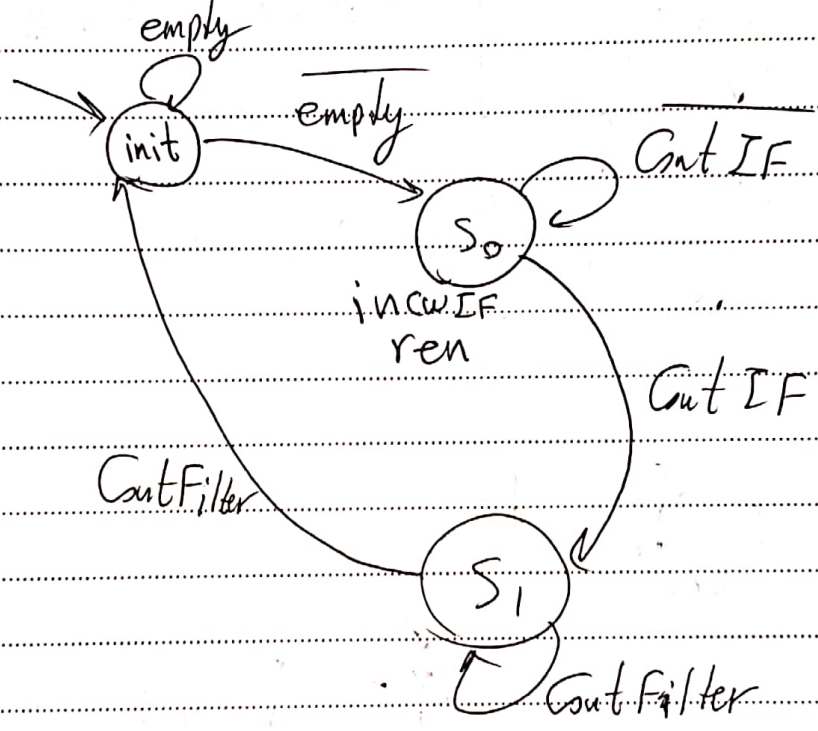 empty
init
empty
CoutIF
S0
incwIF
ren
CoutIF
CoutFilter
S1
CoutFilter